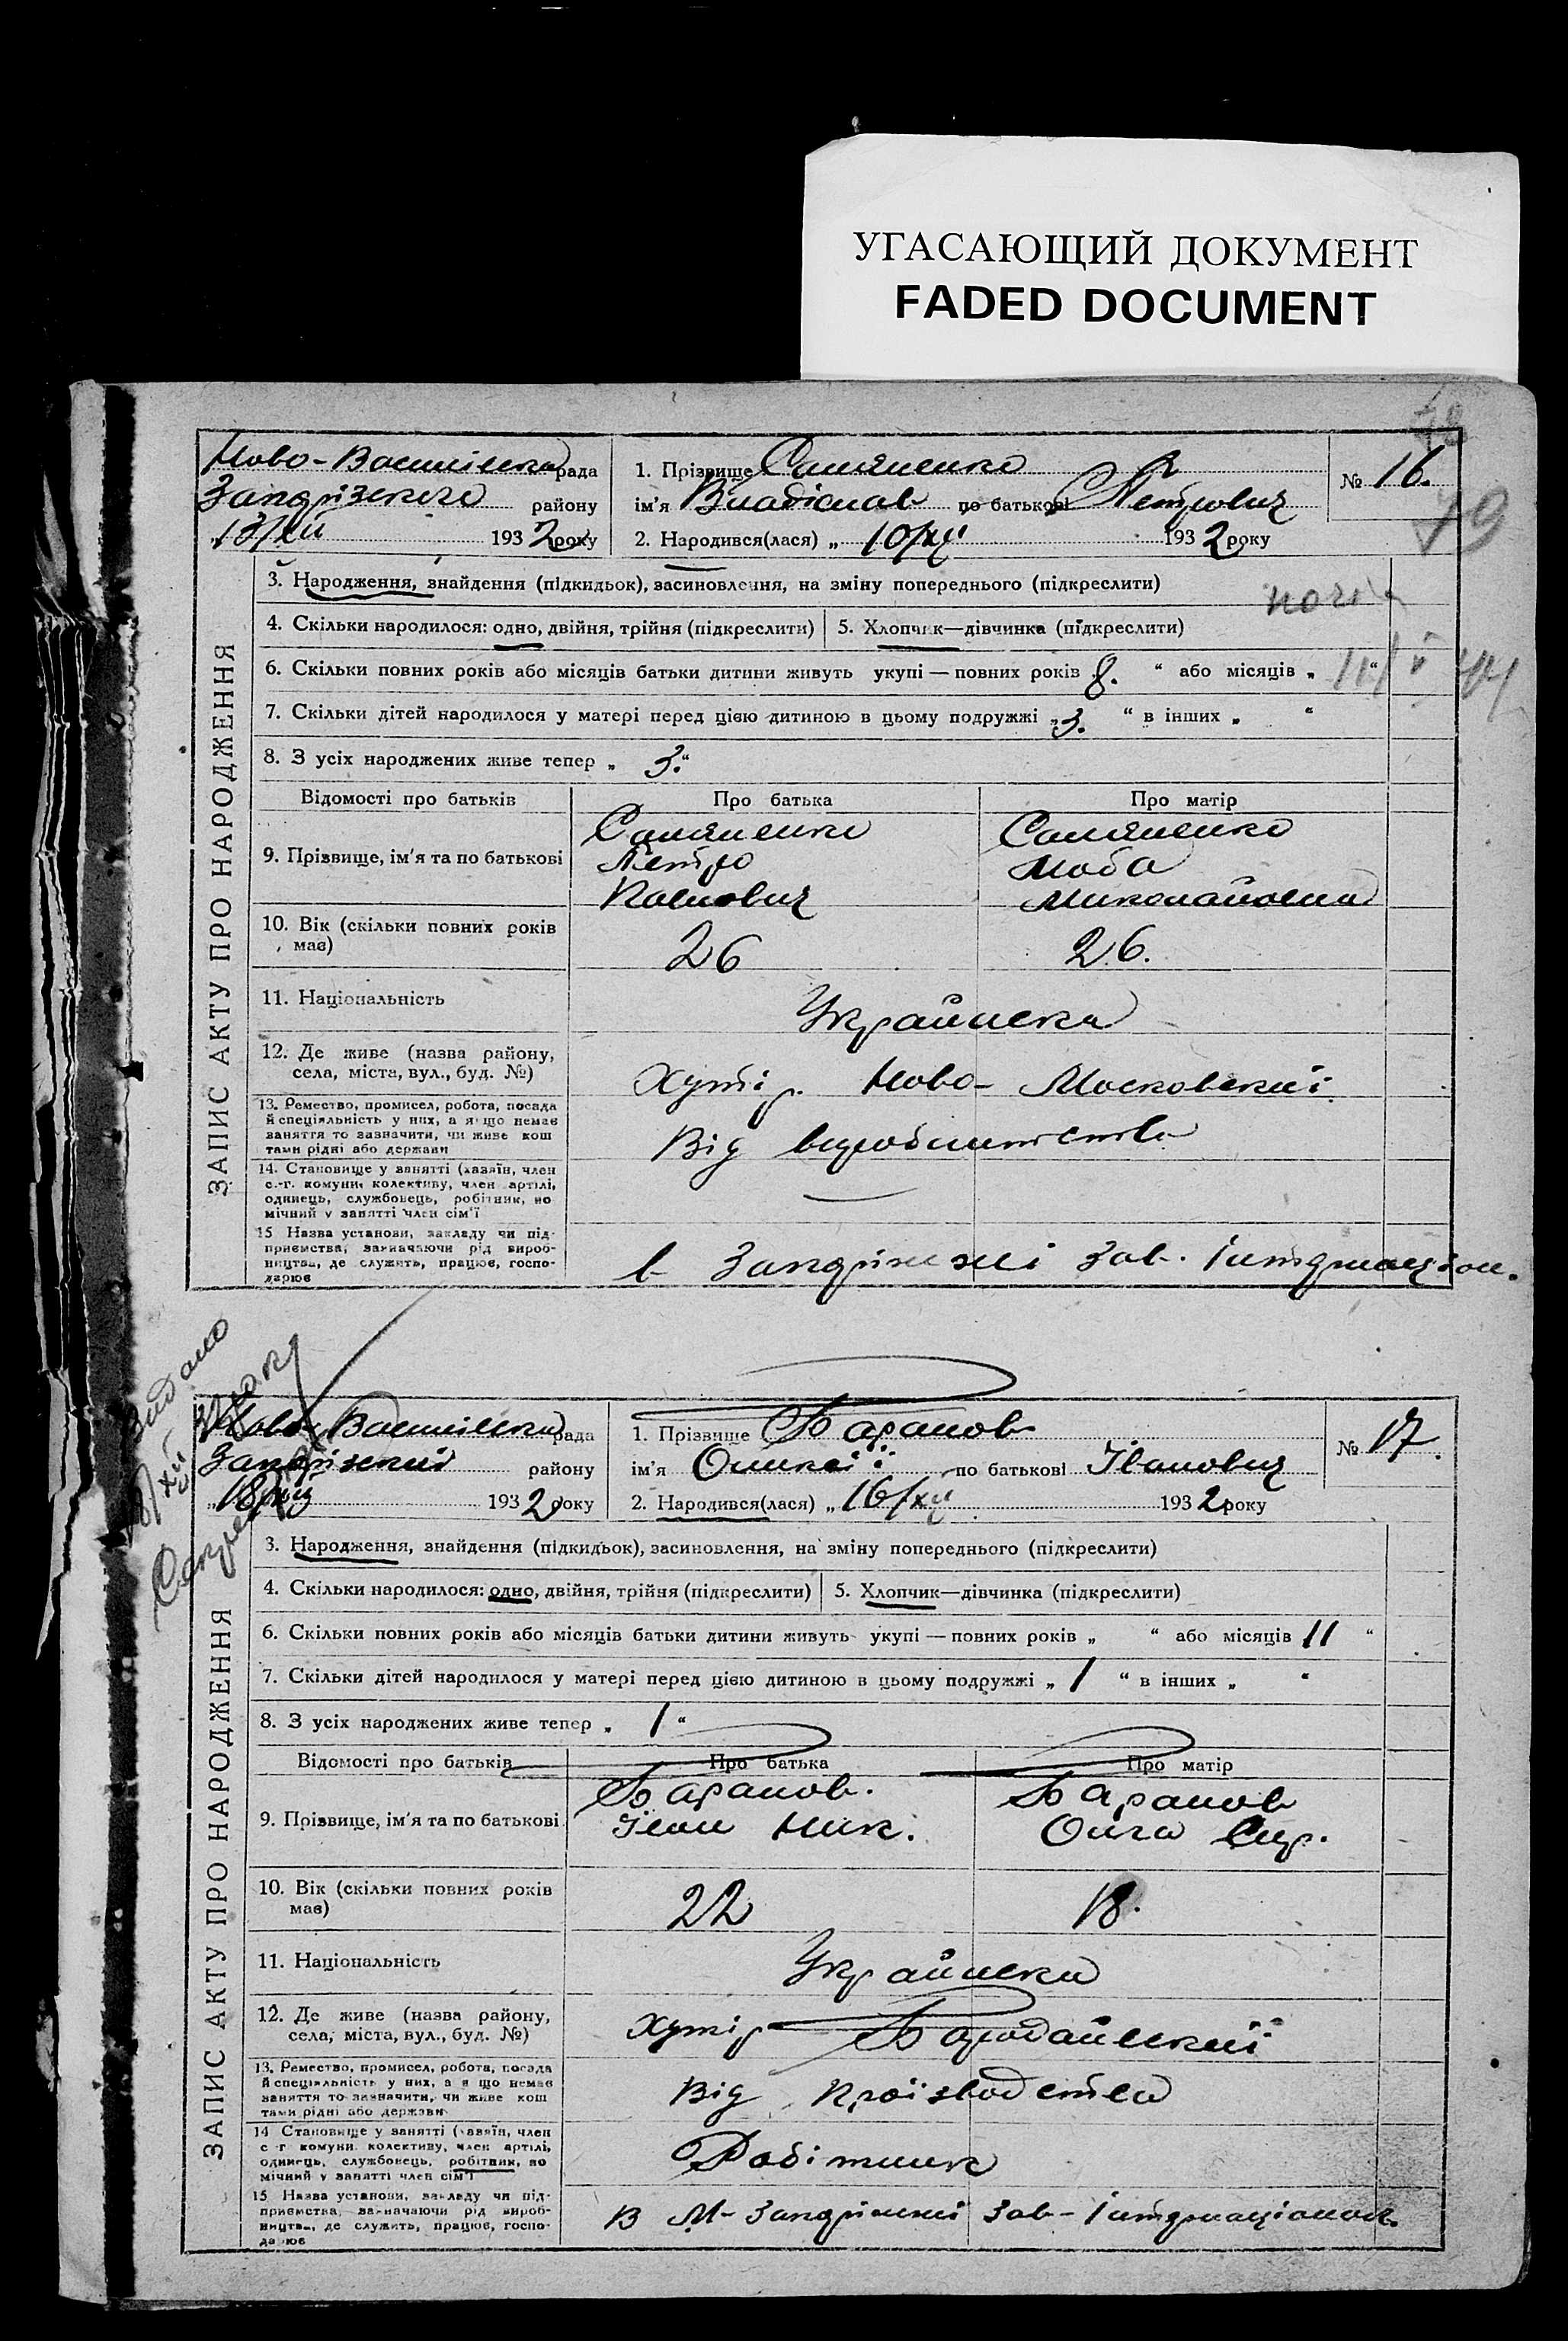 УГАСАЮЩИЙ ДОКУМЕНТ
FADED DOCUMENT
79
Ново-Василівська рада
Запорізького району
13/XII 1932 року
1. Прізвище
ім'я Владіслав по батькові Петрович
2. Народився(лася) „ 10/XII 1932 року
№ 16.
ЗАПИС АКТУ ПРО НАРОДЖЕННЯ
3. Народження, знайдення (підкидьок), засиновлення, на зміну попереднього (підкреслити)
4. Скільки народилося: одно, двійня, трійня (підкреслити)
5. Хлопчик—дівчинка (підкреслити)
6. Скільки повних років або місяців батьки дитини живуть укупі — повних років 8. “ або місяців „ “
7. Скільки дітей народилося у матері перед цією дитиною в цьому подружжі „ 3. “ в інших „ “
8. З усіх народжених живе тепер „ 3. “
Відомості про батьків
Про батька
Про матір
9. Прізвище, ім'я та по батькові
Петро
Миколаївна
10. Вік (скільки повних років
має)
26
26.
11. Національність
Українська
12. Де живе (назва району,
села, міста, вул., буд. №)
Хутір. Ново- Московський
13. Ремество, промисел, робота, посада
й спеціяльність у них, а якщо немає
заняття то зазначити, чи живе кош
тами рідні або держави
Від виробництва
14. Становище у занятті (хазяїн, член
с.-г. комуни, колективу, член артілі,
одинець, службовець, робітник, по
мічний у занятті член сім'ї
15 Назва установи, закладу чи під-
приємства, зазначаючи рід вироб-
ництва, де служить, працює, госпо-
дарює
в Запоріжжі Зав. Інтернаціон.
Видано
Ново-Василівська рада
Запорізький району
„ 18/XII 1932 року
1. Прізвище Баранов
ім'я Олексій по батькові Іванович
2. Народився(лася) „ 16/XII 1932 року
№ 17.
ЗАПИС АКТУ ПРО НАРОДЖЕННЯ
3. Народження, знайдення (підкидьок), засиновлення, на зміну попереднього (підкреслити)
4. Скільки народилося: одно, двійня, трійня (підкреслити)
5. Хлопчик—дівчинка (підкреслити)
6. Скільки повних років або місяців батьки дитини живуть укупі — повних років „ “ або місяців 11 “
7. Скільки дітей народилося у матері перед цією дитиною в цьому подружжі „ 1 “ в інших „ “
8. З усіх народжених живе тепер „ 1 “
Відомості про батьків
Про батька
Про матір
9. Прізвище, ім'я та по батькові
Баранов.
Іван Ник.
Баранов
Ольга
10. Вік (скільки повних років
має)
22
18.
11. Національність
Українська
12. Де живе (назва району,
села, міста, вул., буд. №)
Хутір
13. Ремество, промисел, робота, посада
й спеціяльність у них, а якщо немає
заняття то зазначити, чи живе кош
тами рідні або держави
Відproїзводства
14 Становище у занятті (хазяїн, член
с-г комуни колективу, член артілі,
одинець, службовець, робітник, по
мічний у занятті член сім'ї
Робітник
15 Назва установи, закладу чи під-
приємства, зазначаючи рід вироб-
ництва, де служить, працює, госпо-
дарює
В М- Запоріжжі Зав- Інтернаціонал.